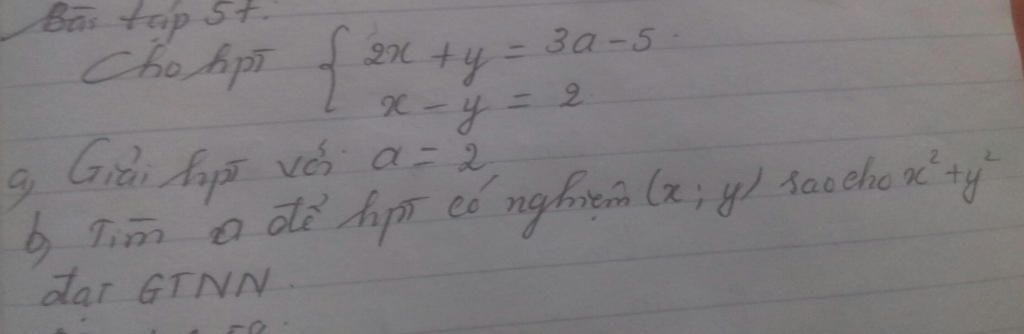 Bài tập 57.
Cho hpt { 2x + y = 3a - 5.
x - y = 2
a, Giải hpt với a = 2
b, Tìm a để hpt có nghiệm (x; y) sao cho x² + y²
đạt GTNN.